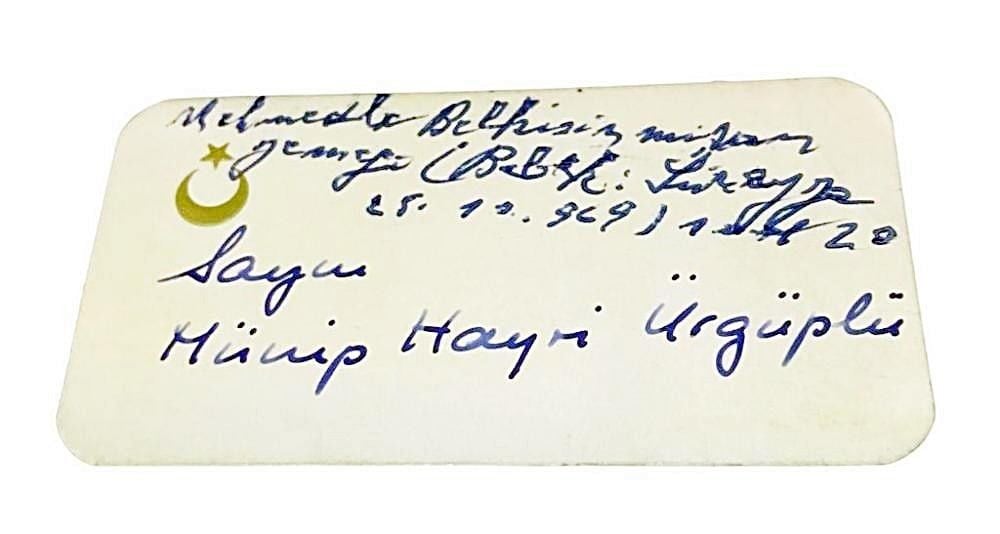 Mehmedle Belkisin nişan
yemeği (Bebek: Süreyya
25. 10. 969) saat 20
Sayın
Münip Hayri Ürgüplü